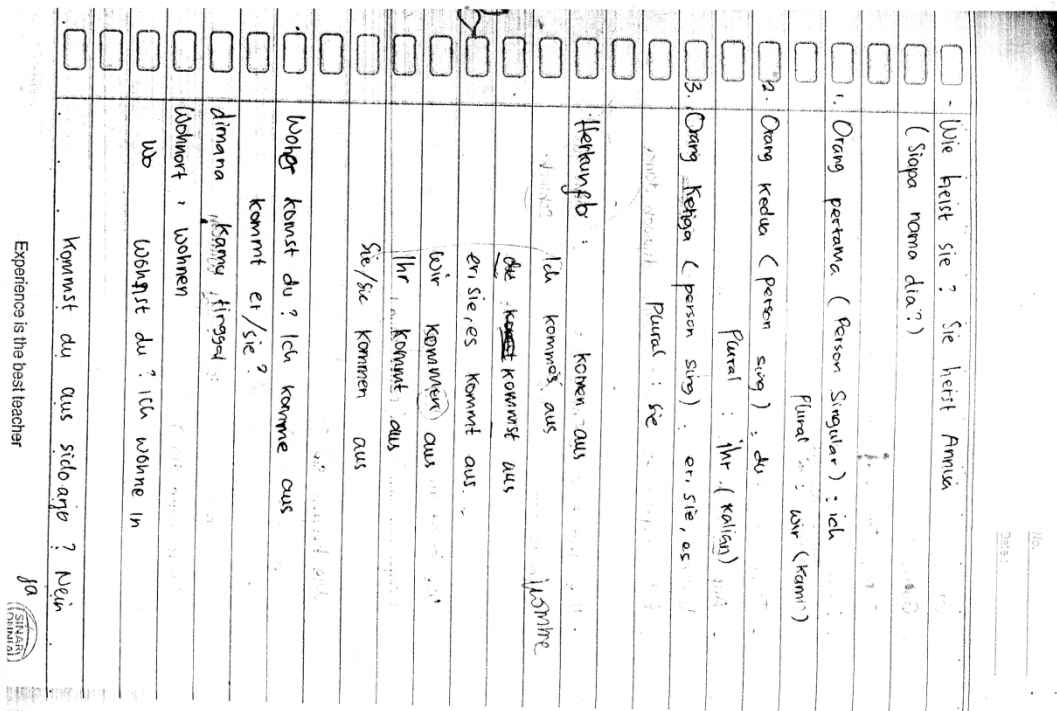 No.
Date:
- Wie heist sie ? Sie heist Annisa
(Siapa nama dia?)
1. Orang pertama (Person Singular) : ich
Plural : wir (kami)
2. Orang kedua (person sing) : du
Plural : ihr (kalian)
3. Orang Ketiga (person sing) : er, sie, es
Plural : sie
Herkunft : komen aus
Ich komme aus
komme
du kommst aus
er, sie, es kommt aus
Wir kommen aus
Ihr kommt aus
Sie/sie kommen aus
Woher komst du? Ich komme aus
kommt er/sie?
dimana kamu tinggal :
Wohnort , wohnen
Wo Wohnst du? ich wohne in
Kommst du aus sidoarjo ? Nein
Ja
Experience is the best teacher
SINAR